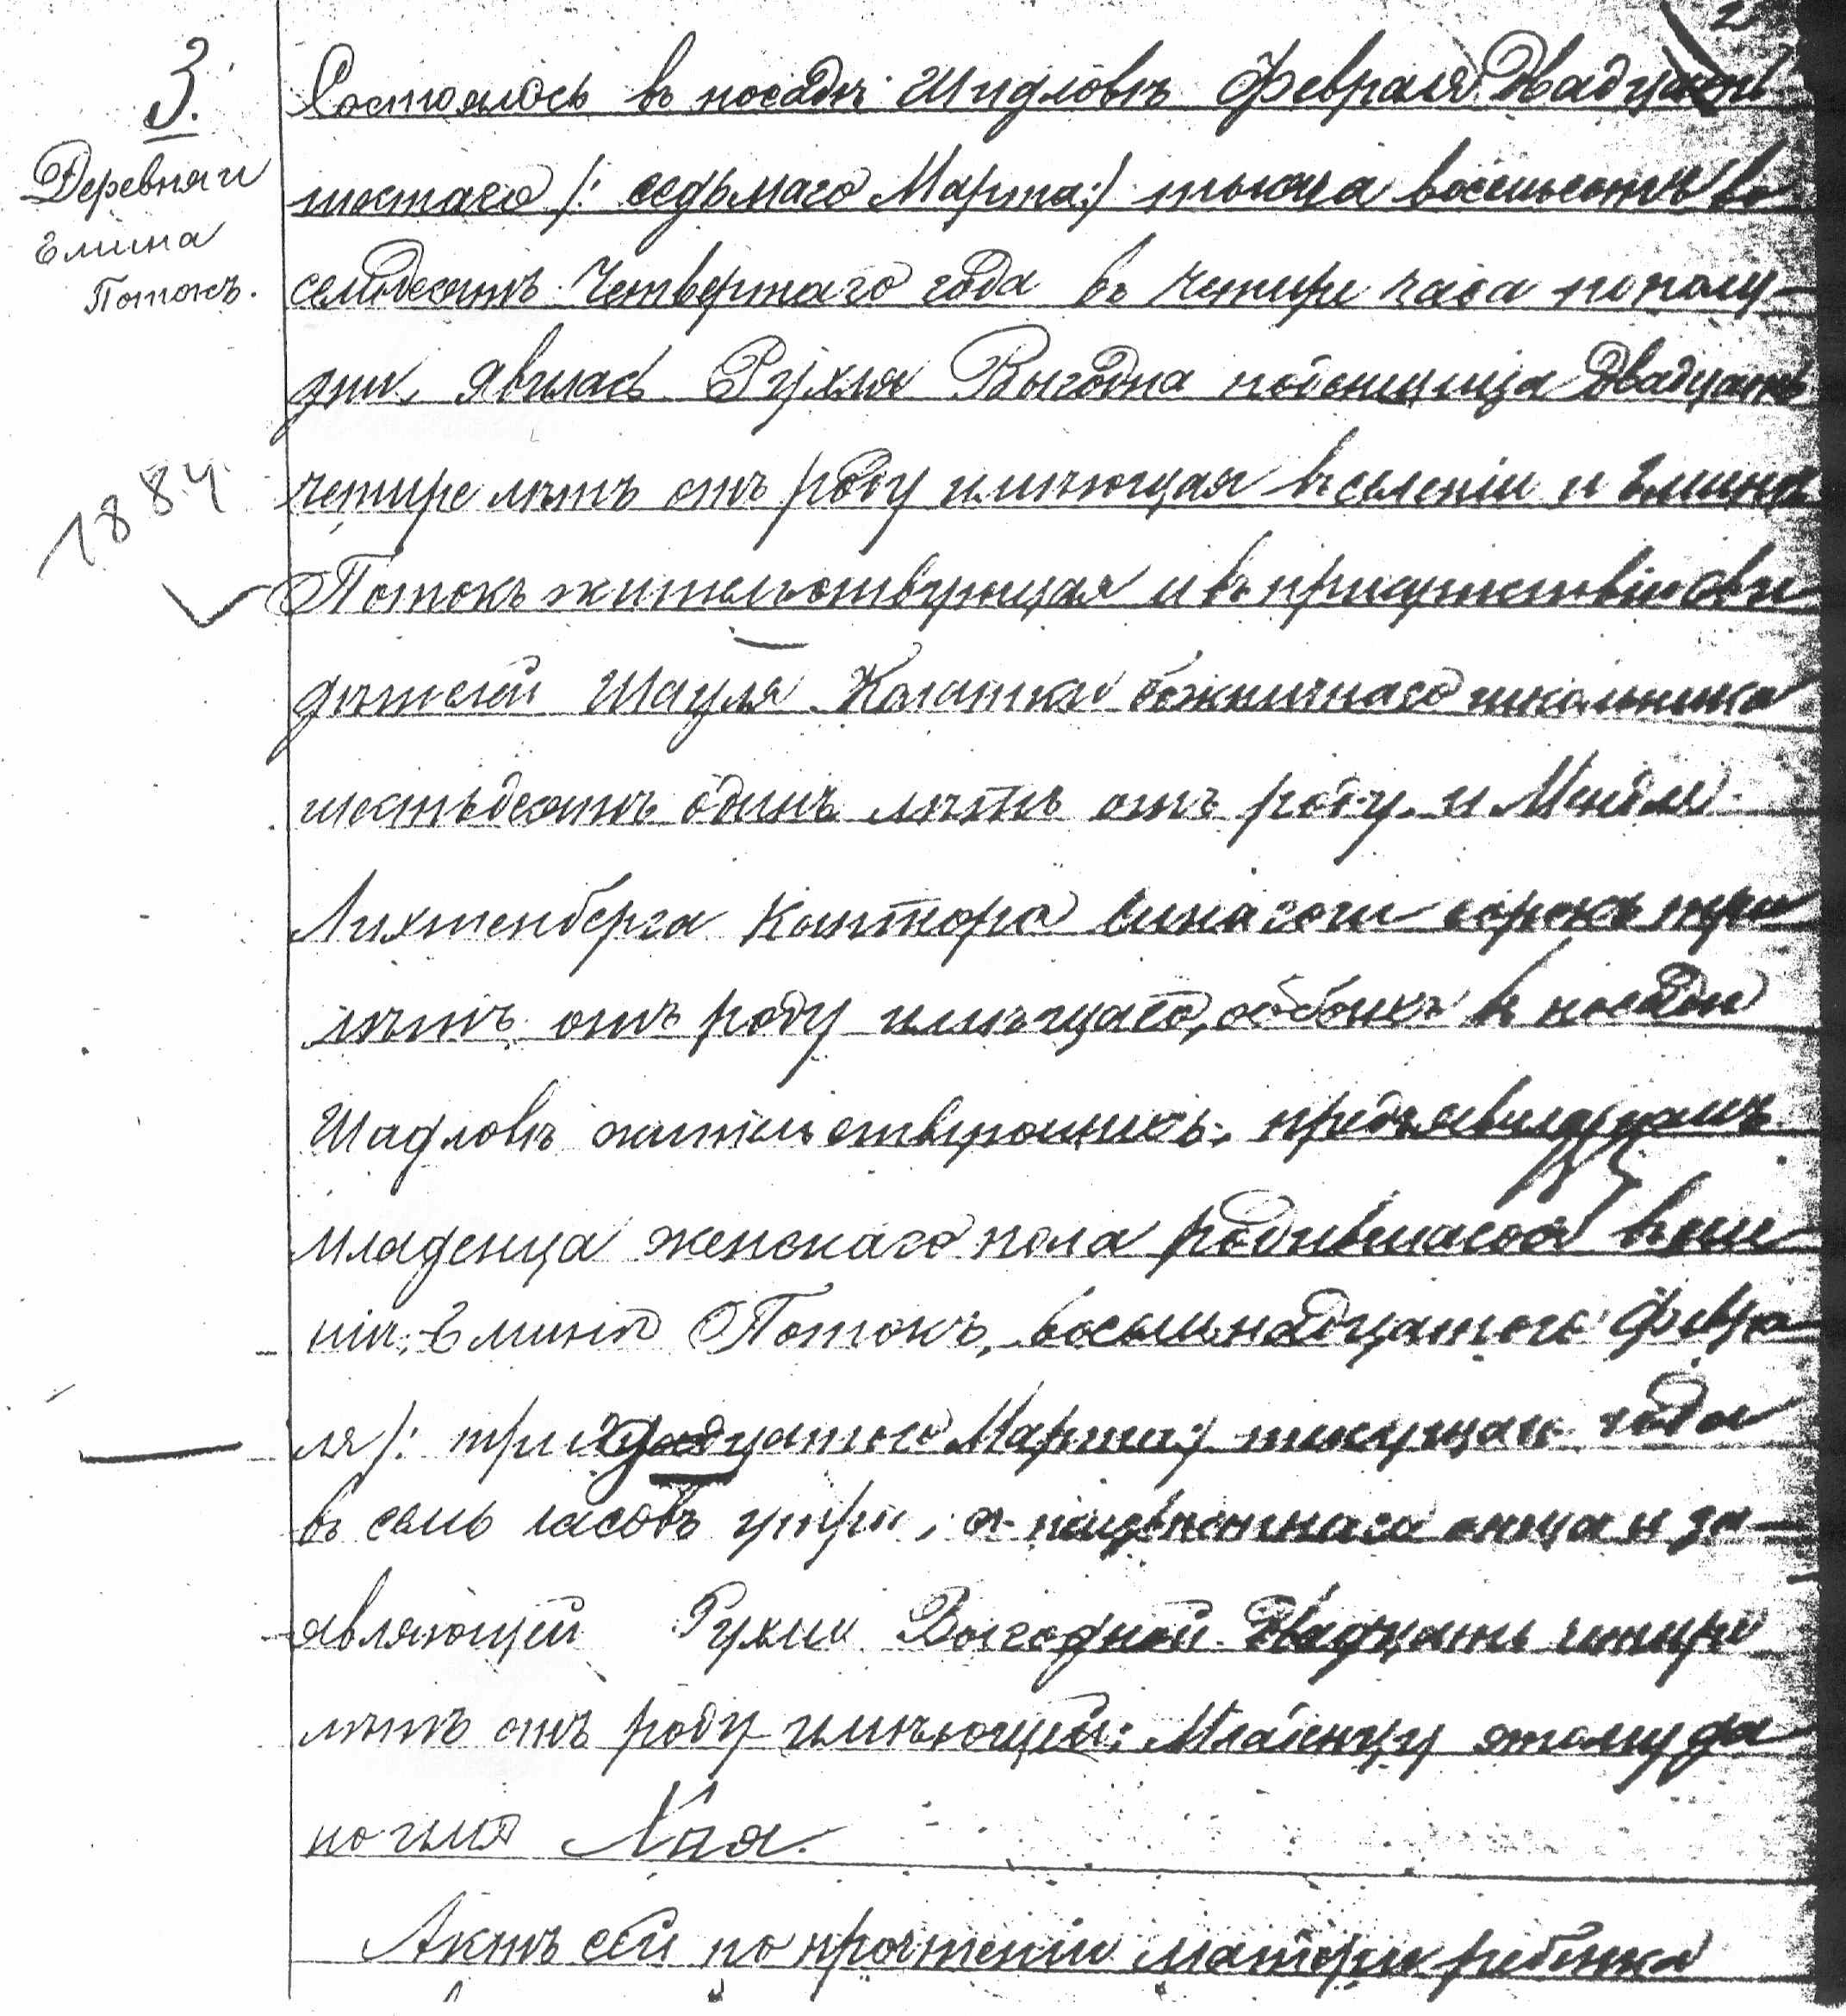 2
3.
Деревня и
Емина
Потокъ.
1884
Состоялось въ посадѣ Шидловѣ Февраля Двадцать
шостаго /: седьмаго Марта:/ тысяча восемьсотъ во
семьдесятъ Четвертаго года въ Четыре часа пополу-
дни, явилась Рухля Выгодна поденщица Двадцать
четыре лѣтъ отъ роду имѣющая въ селеніи и Емина
Потокъ жительствующая и въ присутствіи сви
дѣтелей Шауля божничнаго школьника
шестьдесятъ одинъ лѣтъ отъ роду и Мендля
Лихтенберга Кантора Синагоги сорокъ три
лѣтъ отъ роду имѣщаго, обоихъ въ посадѣ
Шидловѣ жительствующихъ, предъявила намъ
младенца женскаго пола родившагося въ
ніи, Емина Потокъ, восемьнадцатого Февра
ля /: тридцатого Марта:/ текущаго года
въ семь часовъ утра, отъ неизвѣстнаго отца и за-
являющей Рухли Выгодной Двадцать четыре
лѣтъ отъ роду имѣющей: Младенцу этому да
но имя Хая.
Актъ сей по прочтеніи матери ребенка